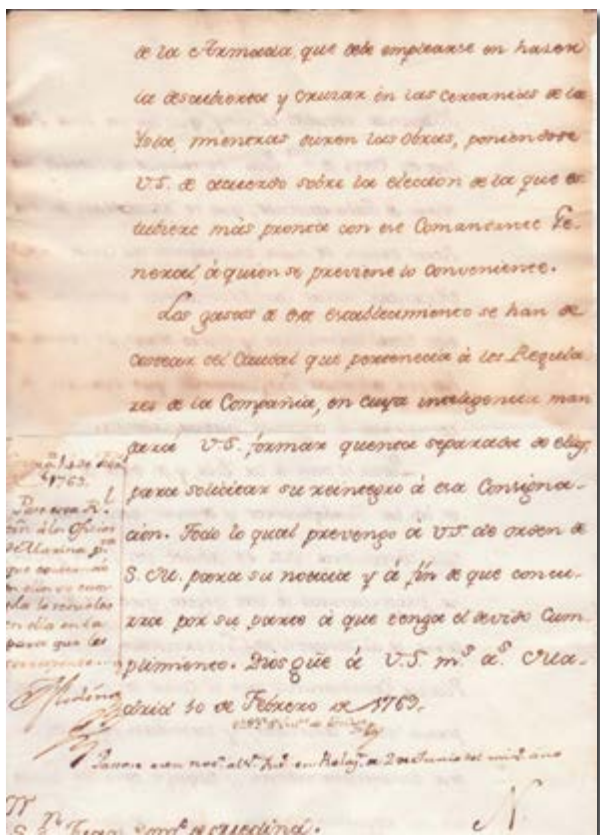 de la Armada, que debe emplearse en hazer
la descubierta y cruzar en las cercanias de la
Ysla, mientras duren las Obras, poniendose
V.S. de acuerdo sobre la eleccion de la que es
tubiere mas pronta con ese Comandante Ge-
neral à quien se previene lo conveniente.
Los gastos de ese establecimiento se han de
costear del Caudal que pertenecia à los Regula
res de la Compañia, en cuya inteligencia man
dará V.S. formar quenta separada de ellos,
para solicitar su reintegro à esa Consigna-
cion. Todo lo qual prevengo à V.S. de orden de
S. M. para su noticia y à fin de que concu-
rra por su parte à que tenga el devido Cum-
plimiento. Dios güe à V.S. ms. as. Ma-
drid 10 de Febrero de 1769.
1769.
Por esta R.l
à los Oficios
de Marina
que
en ella
para que les
Medina
Pasose en 2 de Junio del mismo año
N.
S.r Medina.